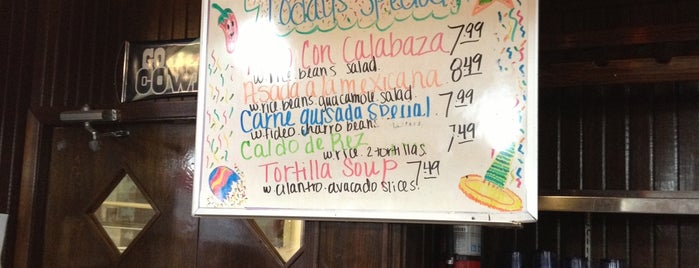 GO
COW
Today's Special
Con Calabaza 7.99
w. rice beans salad.
Asada a la mexicana 8.49
w. rice beans guacamole salad.
Carne guisada special 7.99
w. fideo charro beans
Caldo de Rez 7.49
w. rice 2-tortillas.
Tortilla Soup 7.49
w. cilantro. avacado slices.